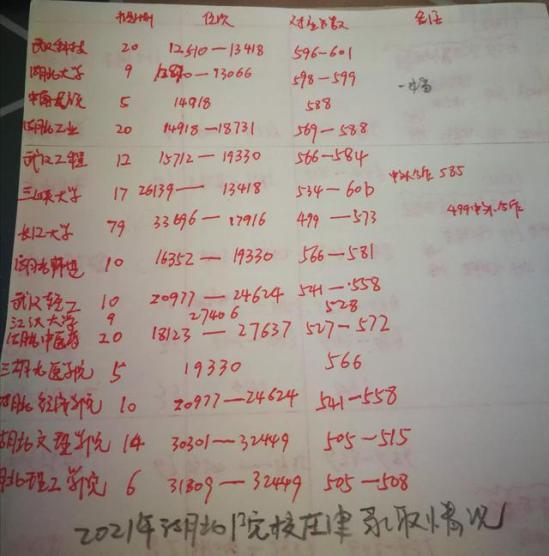 招生计划 位次 对应分数 备注
武汉科技 20 12510—13418 596-601
湖北大学 9 —13066 598-599
中南民院 5 14918 588
湖北工业 20 14918—18731 569-588
武汉工程 12 15712—19330 566-584
三峡大学 17 26139—13418 534-600 中外合作 585
长江大学 79 33696—17916 499—573 499中外合作
湖北师范 10 16352—19330 566-581
武汉轻工 10 20977—24624 541-558
江汉大学 9 27406 528
湖北中医药 20 18123—27637 527-572
湖北医学院 5 19330 566
湖北经济学院 10 20977—24624 541—558
湖北文理学院 14 30301—32449 505—515
湖北理工学院 6 31809—32449 505—508
2021年湖北院校在津录取情况